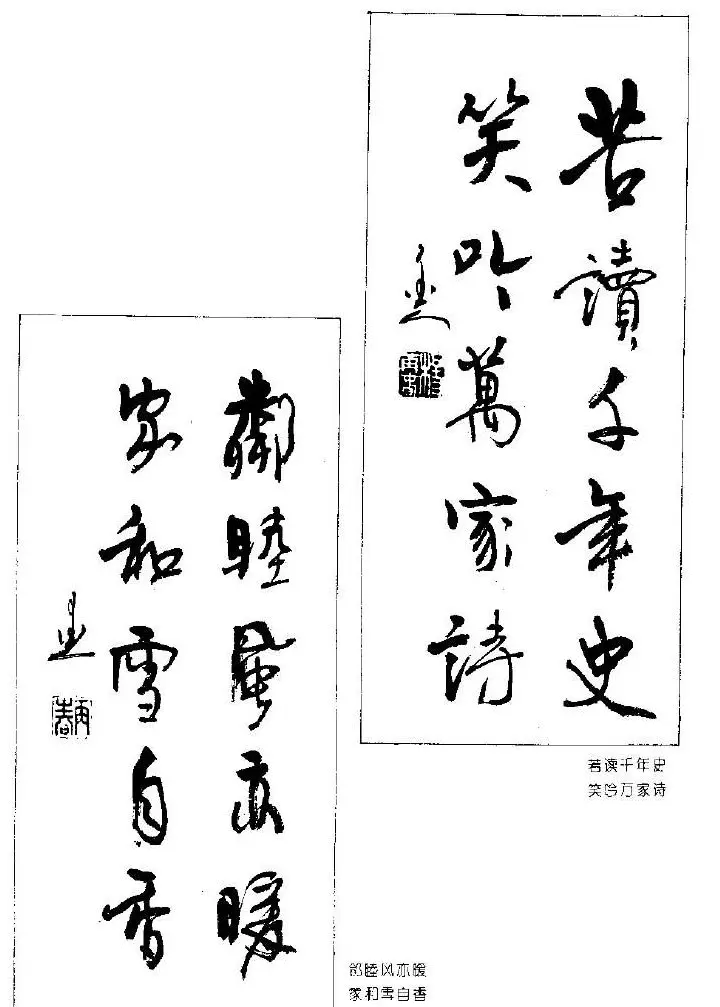 苦讀千年史
笑吟萬家詩
苦读千年史
笑吟万家诗
鄰睦風亦暖
家和雪自香
邻睦风亦暖
家和雪自香